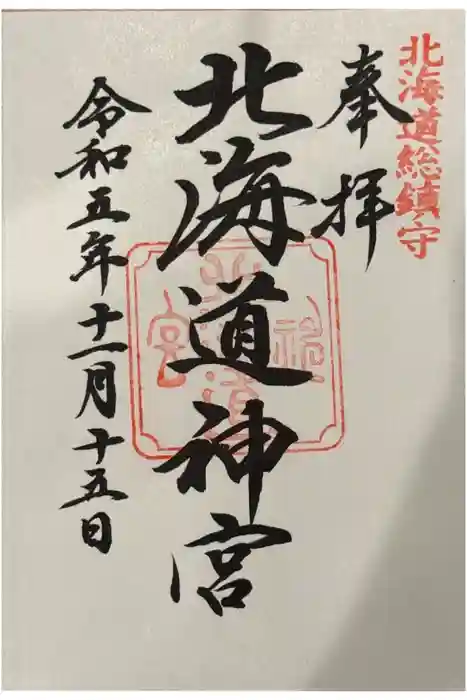 北海道総鎮守
奉拝
北海道神宮
令和五年十一月十五日